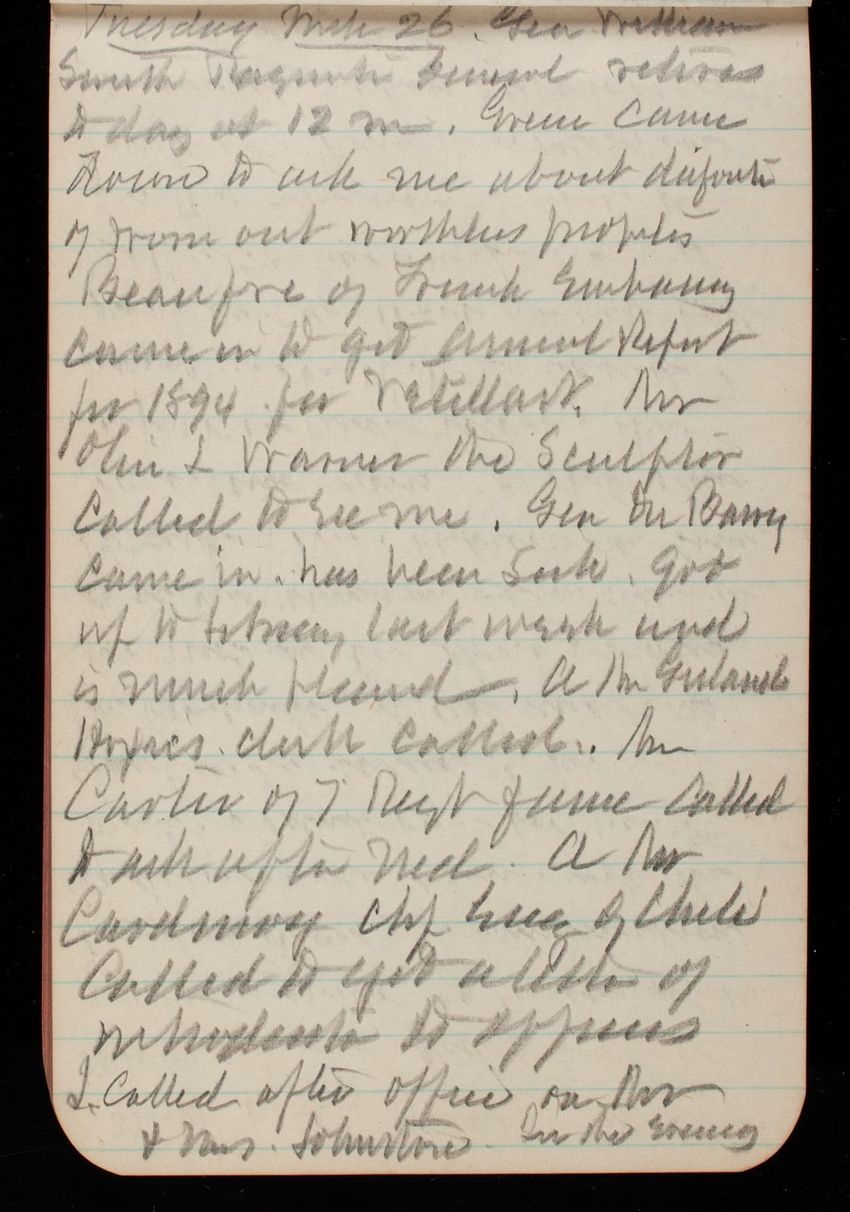 Tuesday Mch 26. Gen William
Smith Paymaster General retires
to day at 12 m. Greene came
down to ask me about disposition
of worn out worthless property
Beaufre of French Embassy
came in to get annual Report
for 1894 for Mr
Olin L Warner the Sculptor
called to see me. Gen Du Barry
came in. has been sick. got
up to last week and
is much pleased. A Mr
clerk called. Mr
Carter of 7 Regt fame called
to ask after Ned. A Mr
Chf Eng of Chili
called to get a letter of
introduction to officers
I called after office on Mr
& Mrs. Johnstone In the evening